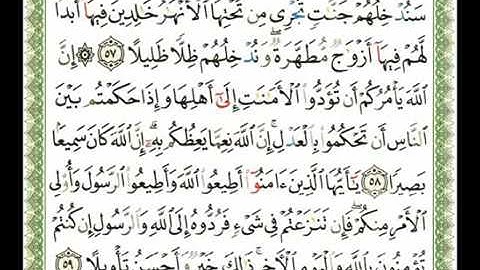 سَنُدْخِلُهُمْ جَنَّٰتٍ تَجْرِى مِن تَحْتِهَا ٱلْأَنْهَٰرُ خَٰلِدِينَ فِيهَآ أَبَدًا
لَّهُمْ فِيهَآ أَزْوَٰجٌ مُّطَهَّرَةٌ وَنُدْخِلُهُمْ ظِلًّا ظَلِيلًا ۝٥٧ ۞ إِنَّ
ٱللَّهَ يَأْمُرُكُمْ أَن تُؤَدُّوا۟ ٱلْأَمَٰنَٰتِ إِلَىٰٓ أَهْلِهَا وَإِذَا حَكَمْتُم بَيْنَ
ٱلنَّاسِ أَن تَحْكُمُوا۟ بِٱلْعَدْلِ إِنَّ ٱللَّهَ نِعِمَّا يَعِظُكُم بِهِۦٓ إِنَّ ٱللَّهَ كَانَ سَمِيعًۢا
بَصِيرًا ۝٥٨ يَٰٓأَيُّهَا ٱلَّذِينَ ءَامَنُوٓا۟ أَطِيعُوا۟ ٱللَّهَ وَأَطِيعُوا۟ ٱلرَّسُولَ وَأُو۟لِى
ٱلْأَمْرِ مِنكُمْ فَإِن تَنَٰزَعْتُمْ فِى شَىْءٍ فَرُدُّوهُ إِلَى ٱللَّهِ وَٱلرَّسُولِ إِن كُنتُمْ
تُؤْمِنُونَ بِٱللَّهِ وَٱلْيَوْمِ ٱلْأَخِرِ ذَٰلِكَ خَيْرٌ وَأَحْسَنُ تَأْوِيلًا ۝٥٩